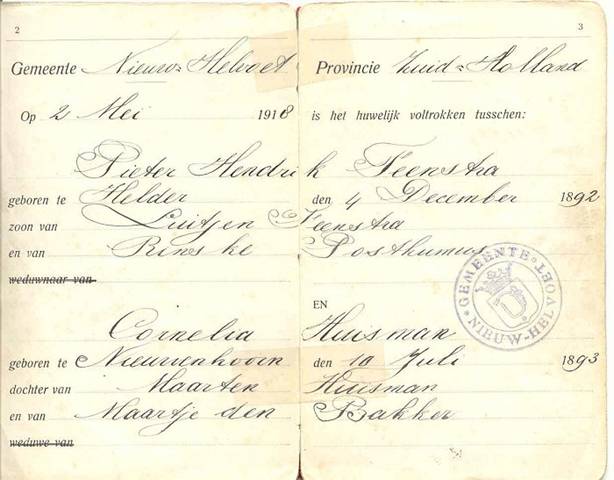 2 3
Gemeente Nieuw-Helvoet Provincie Zuid-Holland
Op 2 Mei 1918 is het huwelijk voltrokken tusschen:
Pieter Hendrik Feenstra
geboren te Helder den 4 December 1892
zoon van Luitjen Feenstra
en van Rinske Posthumus
weduwnaar van
EN
Cornelia Huisman
geboren te Nieuwenhoorn den 10 Juli 1893
dochter van Maarten Huisman
en van Maartje den Bakker
weduwe van
GEMEENTE NIEUW-HELVOET